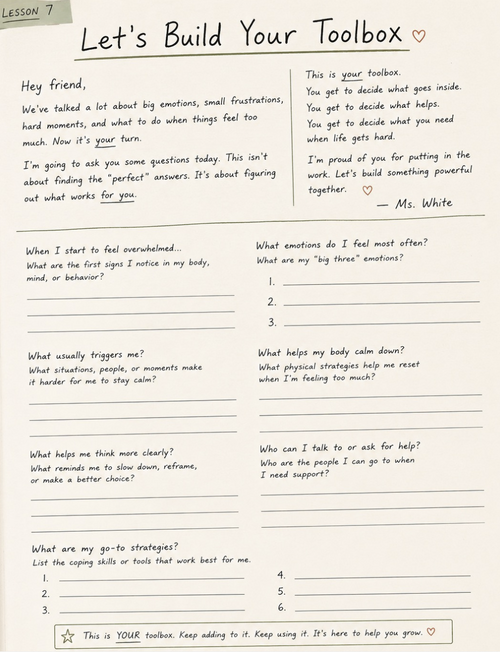 LESSON 7
Let's Build Your Toolbox
Hey friend,
We've talked a lot about big emotions, small frustrations,
hard moments, and what to do when things feel too
much. Now it's your turn.
I'm going to ask you some questions today. This isn't
about finding the "perfect" answers. It's about figuring
out what works for you.
This is your toolbox.
You get to decide what goes inside.
You get to decide what helps.
You get to decide what you need
when life gets hard.
I'm proud of you for putting in the
work. Let's build something powerful
together.
— Ms. White
When I start to feel overwhelmed...
What are the first signs I notice in my body,
mind, or behavior?
What emotions do I feel most often?
What are my "big three" emotions?
1.
2.
3.
What usually triggers me?
What situations, people, or moments make
it harder for me to stay calm?
What helps my body calm down?
What physical strategies help me reset
when I'm feeling too much?
What helps me think more clearly?
What reminds me to slow down, reframe,
or make a better choice?
Who can I talk to or ask for help?
Who are the people I can go to when
I need support?
What are my go-to strategies?
List the coping skills or tools that work best for me.
1.
2.
3.
4.
5.
6.
This is YOUR toolbox. Keep adding to it. Keep using it. It's here to help you grow.